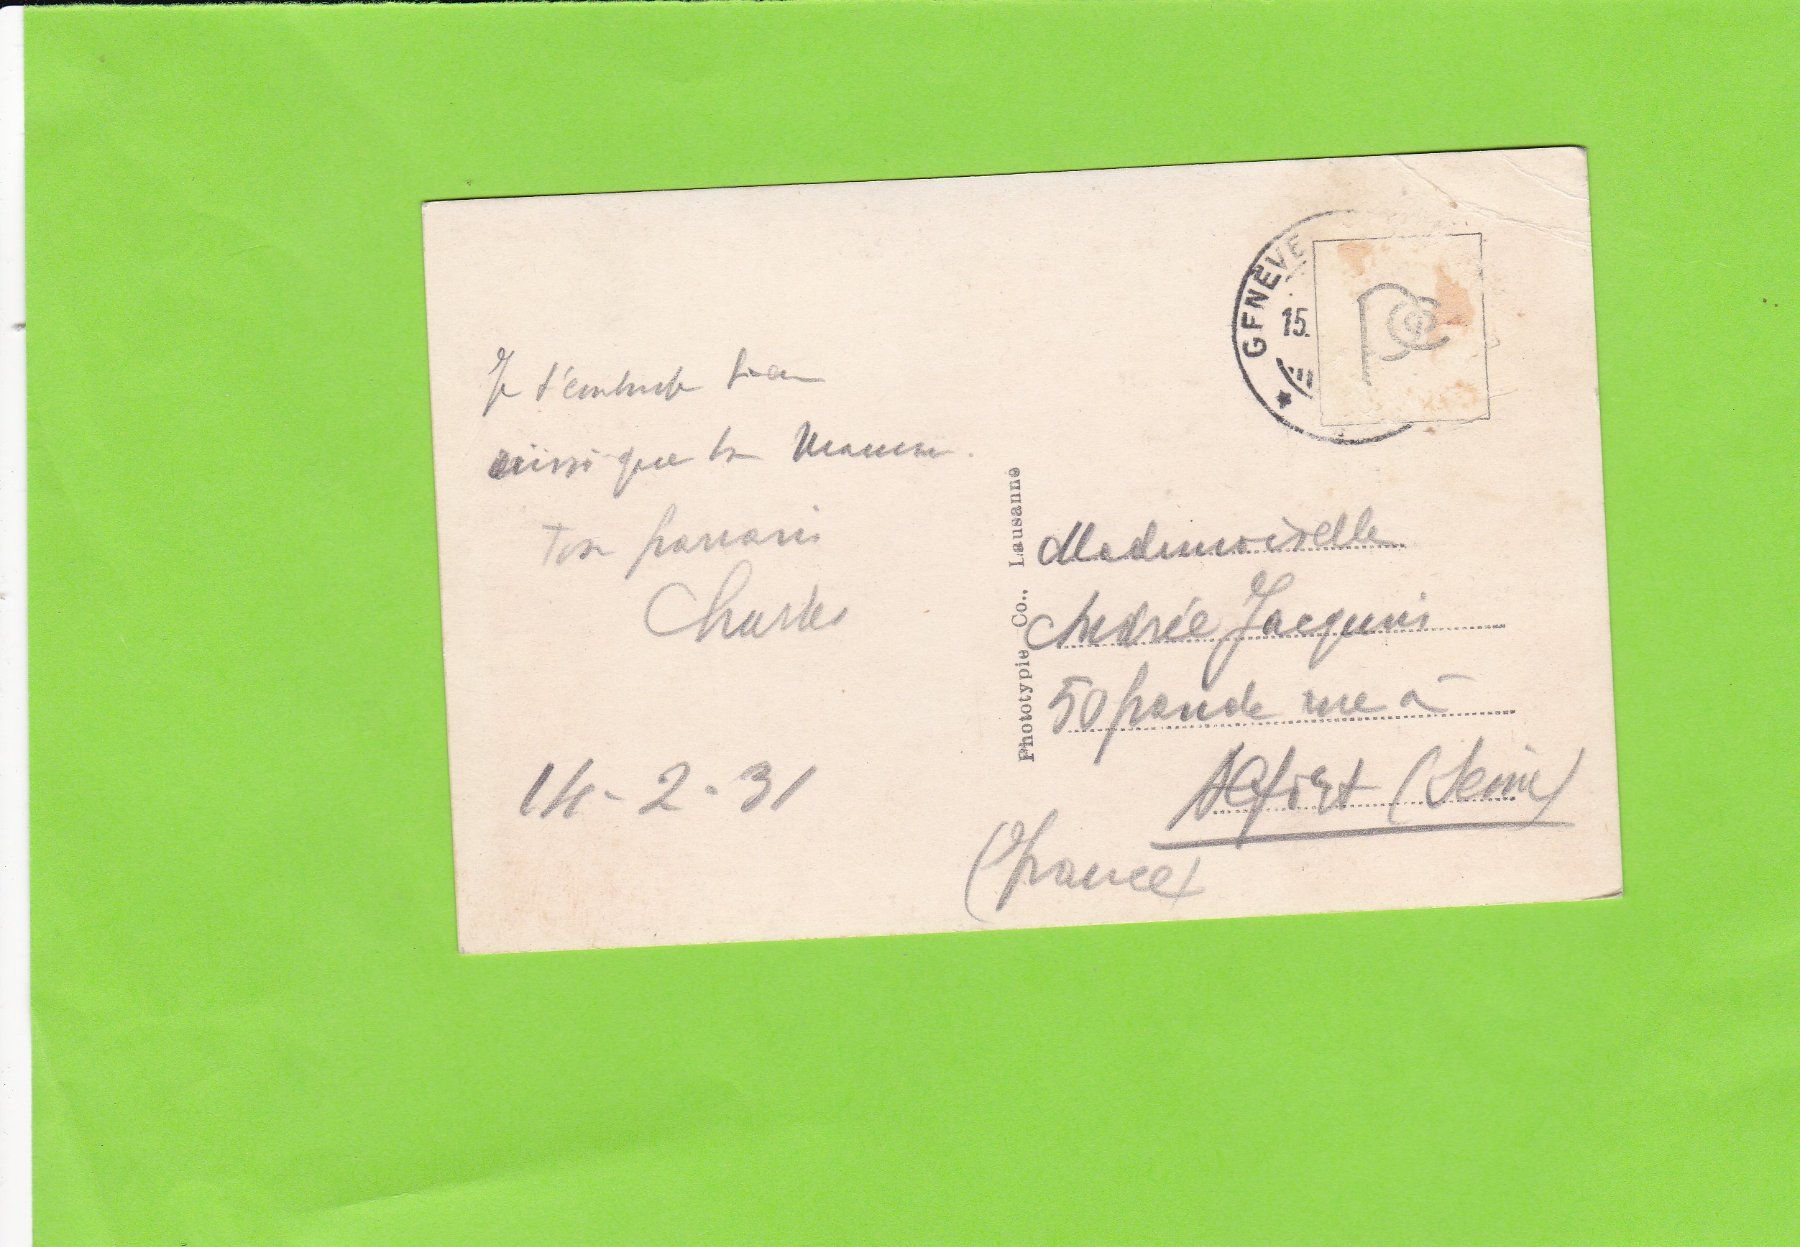 Je t'embrasse bien
ainsi que ta Maman.
Ton parrain
Charles
14-2-31
GENÈVE
15.
Phototypie Co., Lausanne
Mademoiselle
Andrée Jacquin
50 grande rue à
Alfort (Seine)
(France)